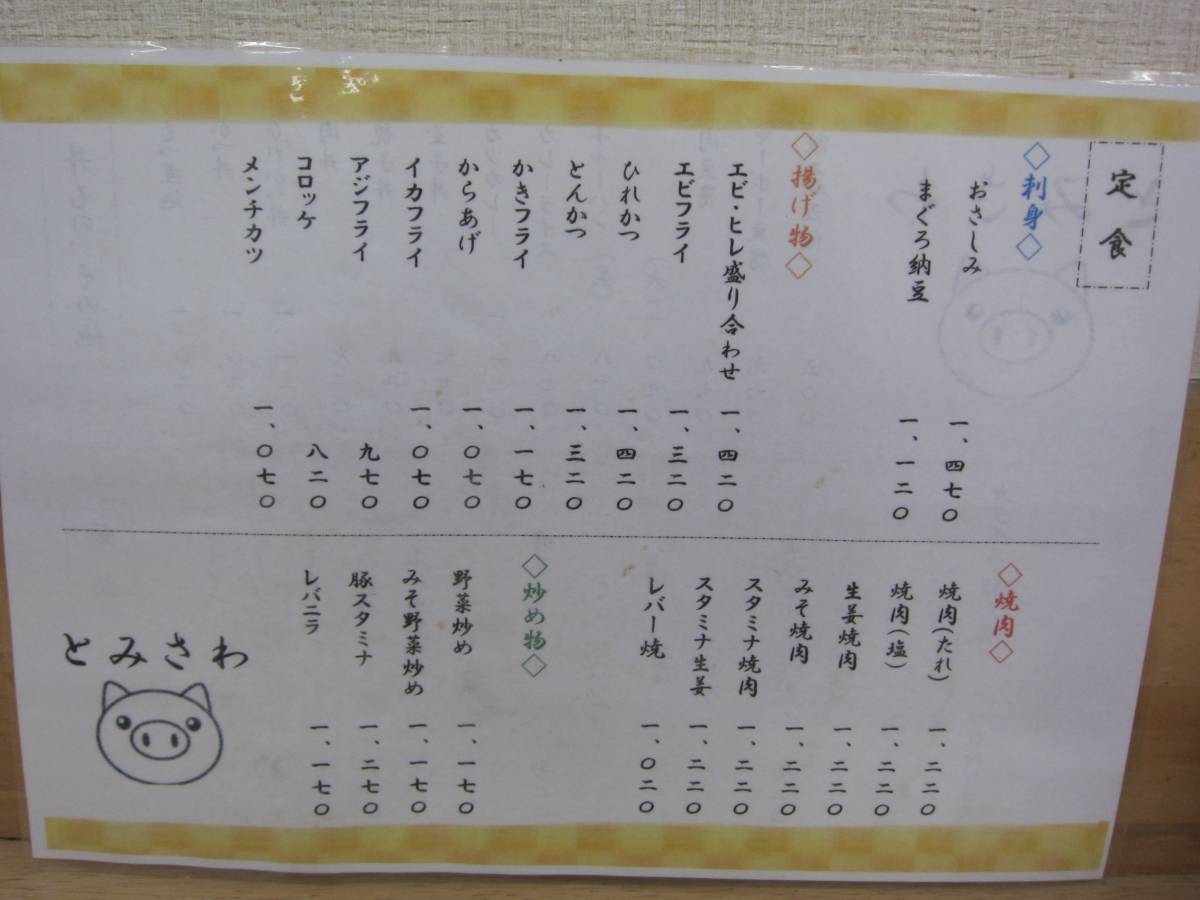 定食
◇刺身◇
おさしみ 一、四七〇
まぐろ納豆 一、一二〇
◇揚げ物◇
エビ・ヒレ盛り合わせ 一、四二〇
エビフライ 一、三二〇
ひれかつ 一、四二〇
とんかつ 一、三二〇
かきフライ 一、一七〇
からあげ 一、〇七〇
イカフライ 一、〇七〇
アジフライ 九七〇
コロッケ 八二〇
メンチカツ 一、〇七〇
◇焼肉◇
焼肉(たれ) 一、二二〇
焼肉(塩) 一、二二〇
生姜焼肉 一、二二〇
みそ焼肉 一、二二〇
スタミナ焼肉 一、二二〇
スタミナ生姜 一、二二〇
レバー焼 一、〇二〇
◇炒め物◇
野菜炒め 一、一七〇
みそ野菜炒め 一、一七〇
豚スタミナ 一、二七〇
レバニラ 一、一七〇
とみさわ